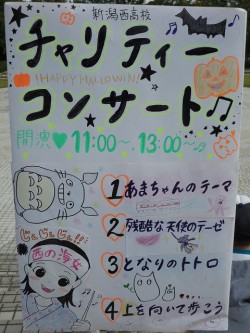 新潟西高校
チャリティー
!HAPPY HALLOWIN!
コンサート♫
開演♥11:00〜、13:00〜♫
1 あまちゃんのテーマ
2 残酷な天使のテーゼ
3 となりのトトロ
4 上を向いて歩こう
じぇじぇじぇ!!
西の海女